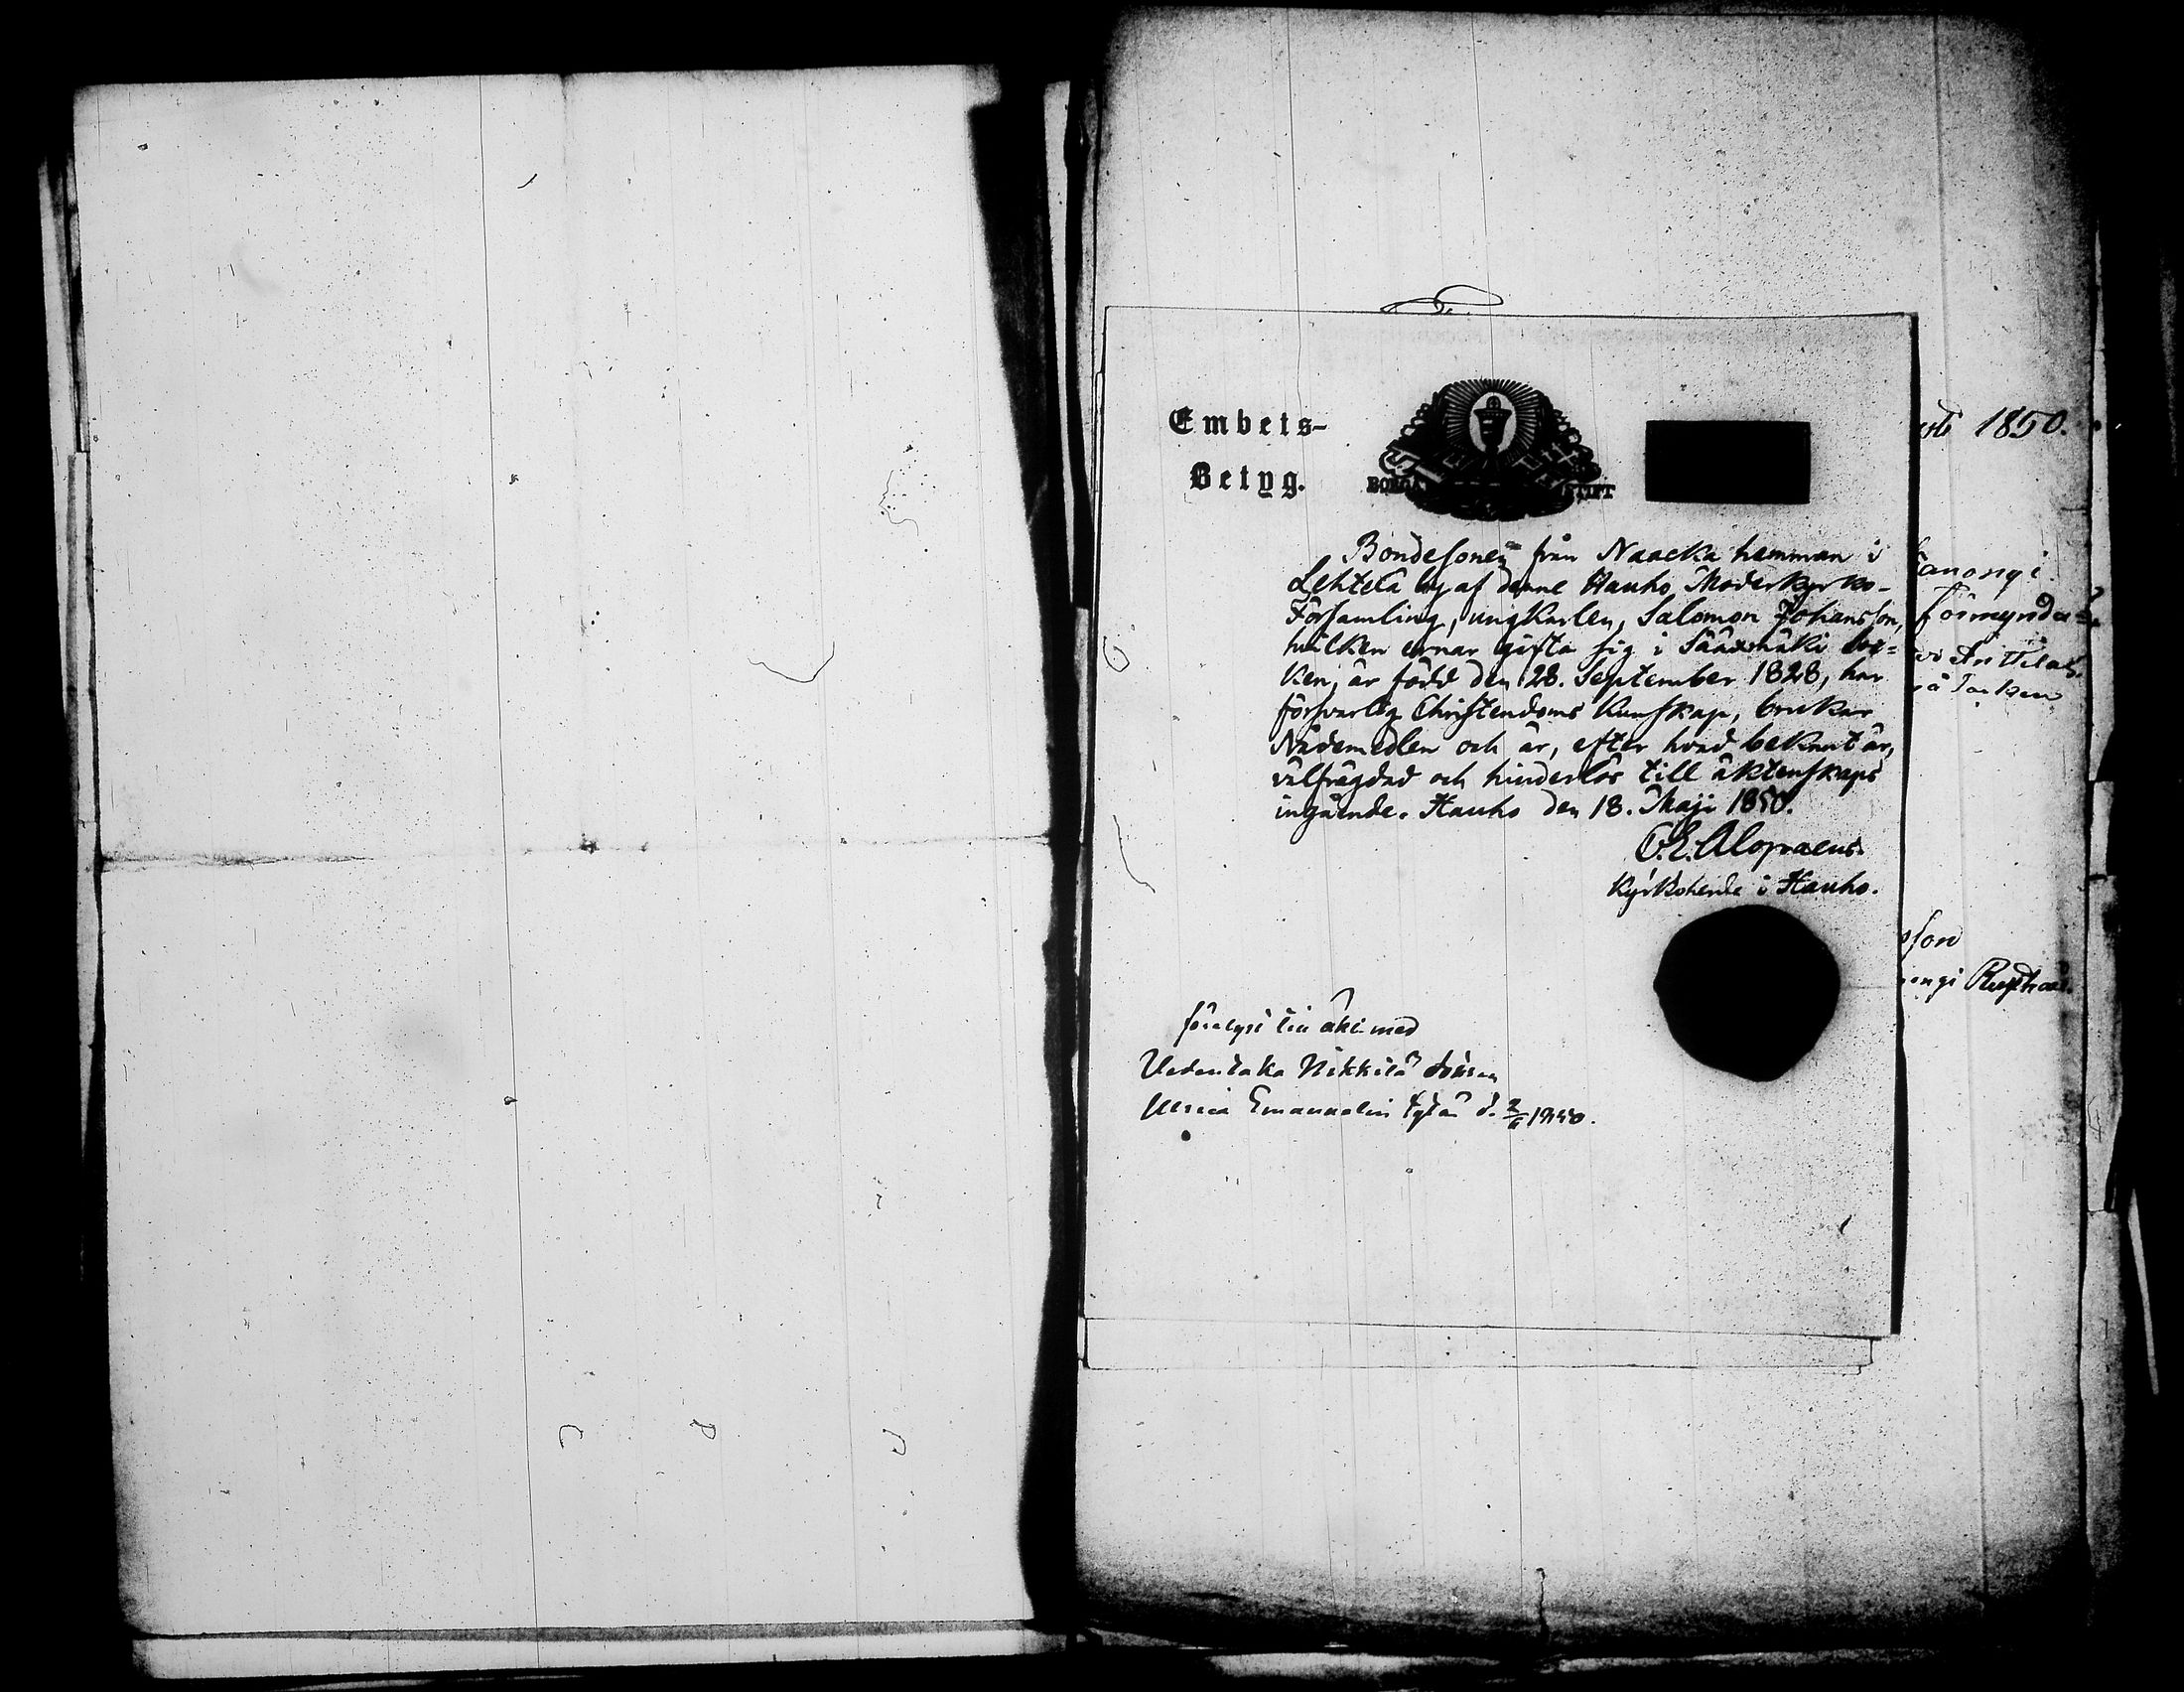 Embets-
Betyg.
BORGÅ STIFT
Bondesonen från Naacka hemman i
Lehtelä by af denne Hauho Moderkyrko-
Församling, ungkarlen, Salomon Johansson,
hvilken ernar gifta sig i Sääxmäki Soc=
ken, är född den 28. September 1828, har
försvarlig Christendoms Kunskap, brukar
Nådemedlen och är, efter hvad bekant är,
välfrägdad och hinderlös till äktenskaps
ingående. Hauho den 18. Maji 1850.
O.E. Alopaeus.
Kyrkoherde i Hauho.
förelyst till äkt. med
Uedentaka Nikkilä
Ulrica Emanualin d. 2/6 1850.
1850.
Förmyndar
son